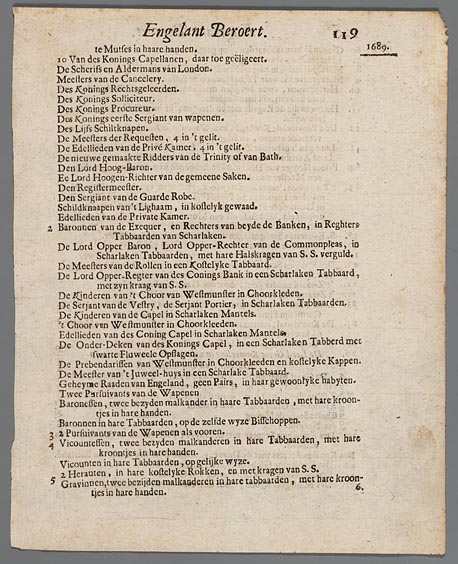 Engelant Beroert. 119
1689.
te Mutses in haare handen.
10 Van des Konings Capellanen, daar toe geëligeert.
De Scherifs en Aldermans van London.
Meesters van de Cancelery.
Des Konings Rechtsgeleerden.
Des Konings Solliciteur.
Des Konings Procureur.
Des Konings eerste Sergiant van wapenen.
Des Lijfs Schiltknapen.
De Meesters der Requesten, 4 in 't gelit.
De Edellieden van de Privé Kamer, 4 in 't gelit.
De nieuwe gemaakte Ridders van de Trinity of van Bath.
Den Lord Hoog-Baron.
Ee Lord Hoogen-Richter van de gemeene Saken.
Den Registermeester.
Den Sergiant van de Guarde Robe.
Schildknaapen van 't Lighaam, in kostelyk gewaad.
Edellieden van de Private Kamer.
2 Baronnen van de Exequer, en Rechters van beyde de Banken, in Reghters
Tabbaarden van Scharlaken.
De Lord Opper Baron, Lord Opper-Rechter van de Commonpleas, in
Scharlaken Tabbaarden, met hare Halskragen van S. S. verguld.
De Meesters van de Rollen in een Kostelyke Tabbaard.
De Lord Opper-Regter van des Conings Bank in een Scharlaken Tabbaard,
met zyn kraag van S. S.
De Kinderen van 't Choor van Westmunster in Choorkleden.
De Serjant van de Vestry, de Serjant Portier, in Scharlaken Tabbaarden.
De Kinderen van de Capel in Scharlaken Mantels.
't Choor van Westmunster in Choorkleeden.
Edellieden van des Coning Capel in Scharlaken Mantels.
De Onder-Deken van des Konings Capel, in een Scharlaken Tabberd met
swarte Fluweele Opslagen.
De Prebendarissen van Westmunster in Choorkleeden en kostelyke Kappen.
De Meester van 't Juweel-huys in een Scharlake Tabbaard.
Geheyme Raaden van Engeland, geen Pairs, in haar gewoonlyke habyten.
Twee Pursuivants van de Wapenen
Baronessen, twee bezyden malkander in haare Tabbaarden, met hare kroon-
tjes in hare handen.
Baronnen in hare Tabbaarden, op de zelfde wyze Bisschoppen.
3 2 Pursuivants van de Wapenen als vooren.
4 Vicountessen, twee bezyden malkanderen in hare Tabbaarden, met hare
kroontjes in hare handen.
Vicounten in hare Tabbaarden, op gelijke wyze.
2 Herauten, in hare kostelyke Rokken, en met kragen van S. S.
5 Gravinnen, twee bezijden malkanderen in hare tabbaarden, met hare kroon-
tjes in hare handen. 6.